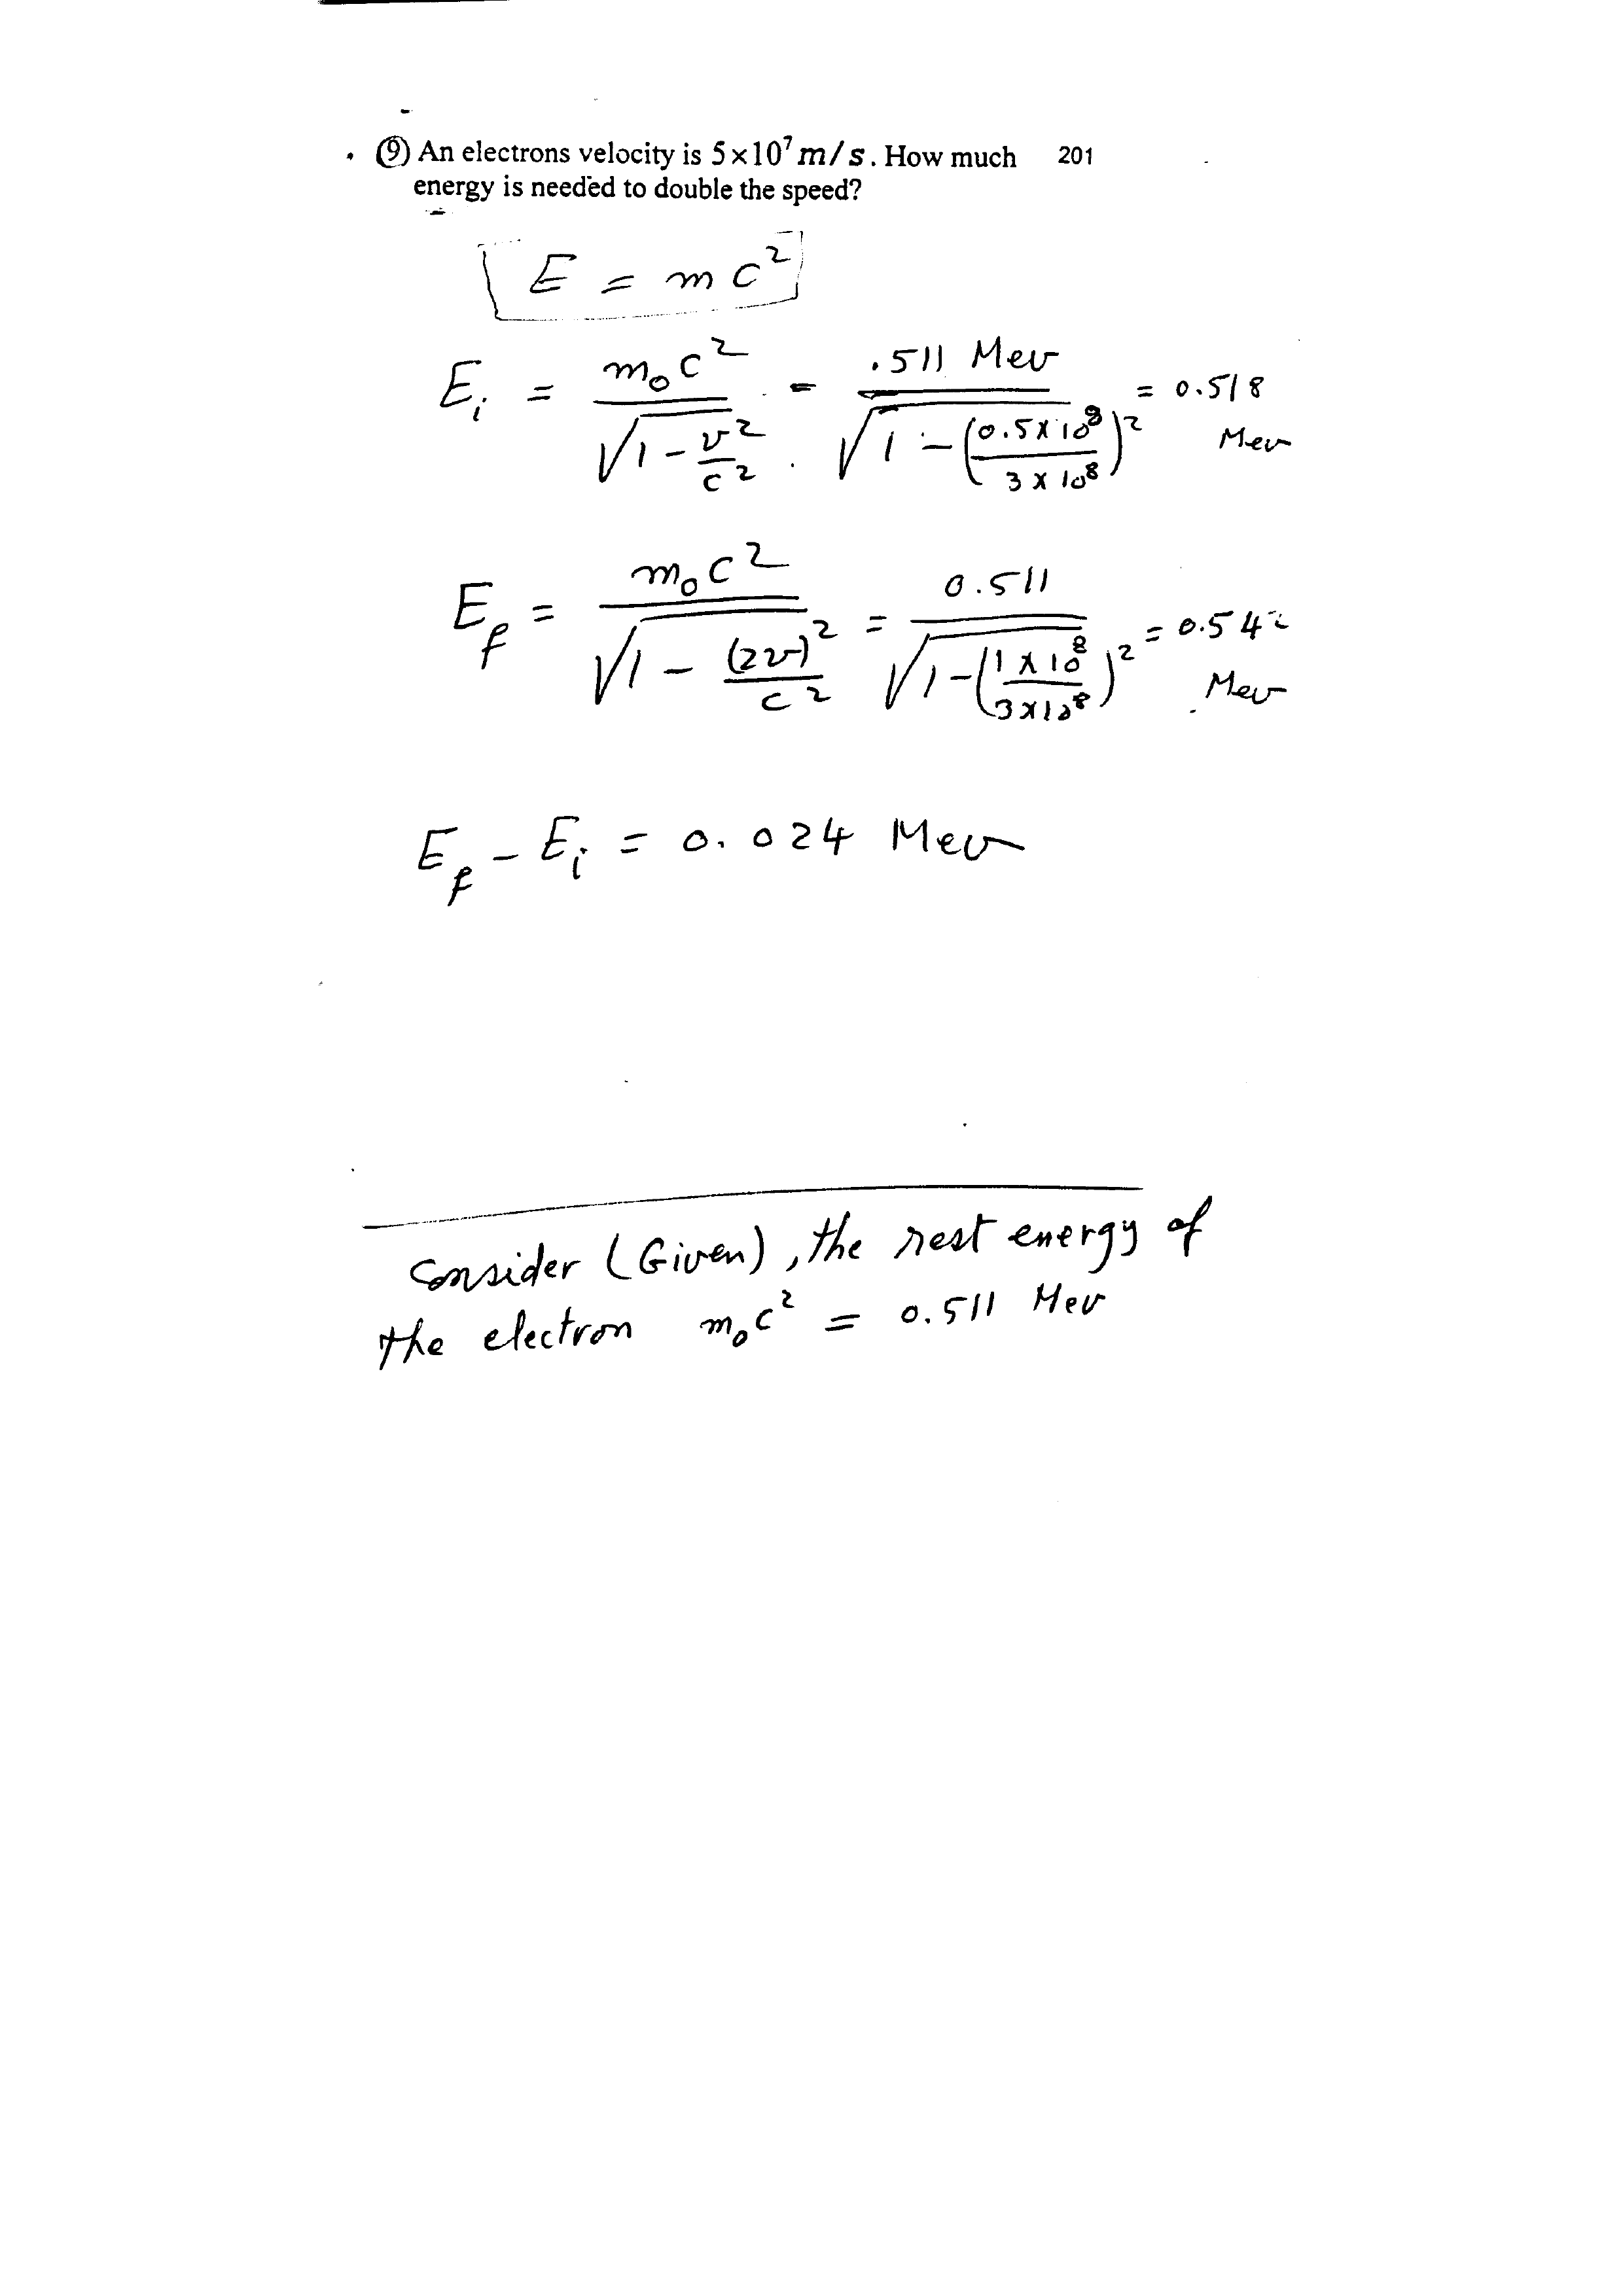 ⑨ An electrons velocity is 5×10⁷ m/s. How much 201
energy is needed to double the speed?
E = mc²
E_i = m₀c² / √(1 - v²/c²) = .511 Mev / √(1 - (0.5×10⁸ / 3×10⁸)²) = 0.518 Mev
E_f = m₀c² / √(1 - (2v)²/c²) = 0.511 / √(1 - (1×10⁸ / 3×10⁸)²) = 0.542 Mev
E_f - E_i = 0.024 Mev
Consider (Given), the rest energy of
the electron m₀c² = 0.511 Mev